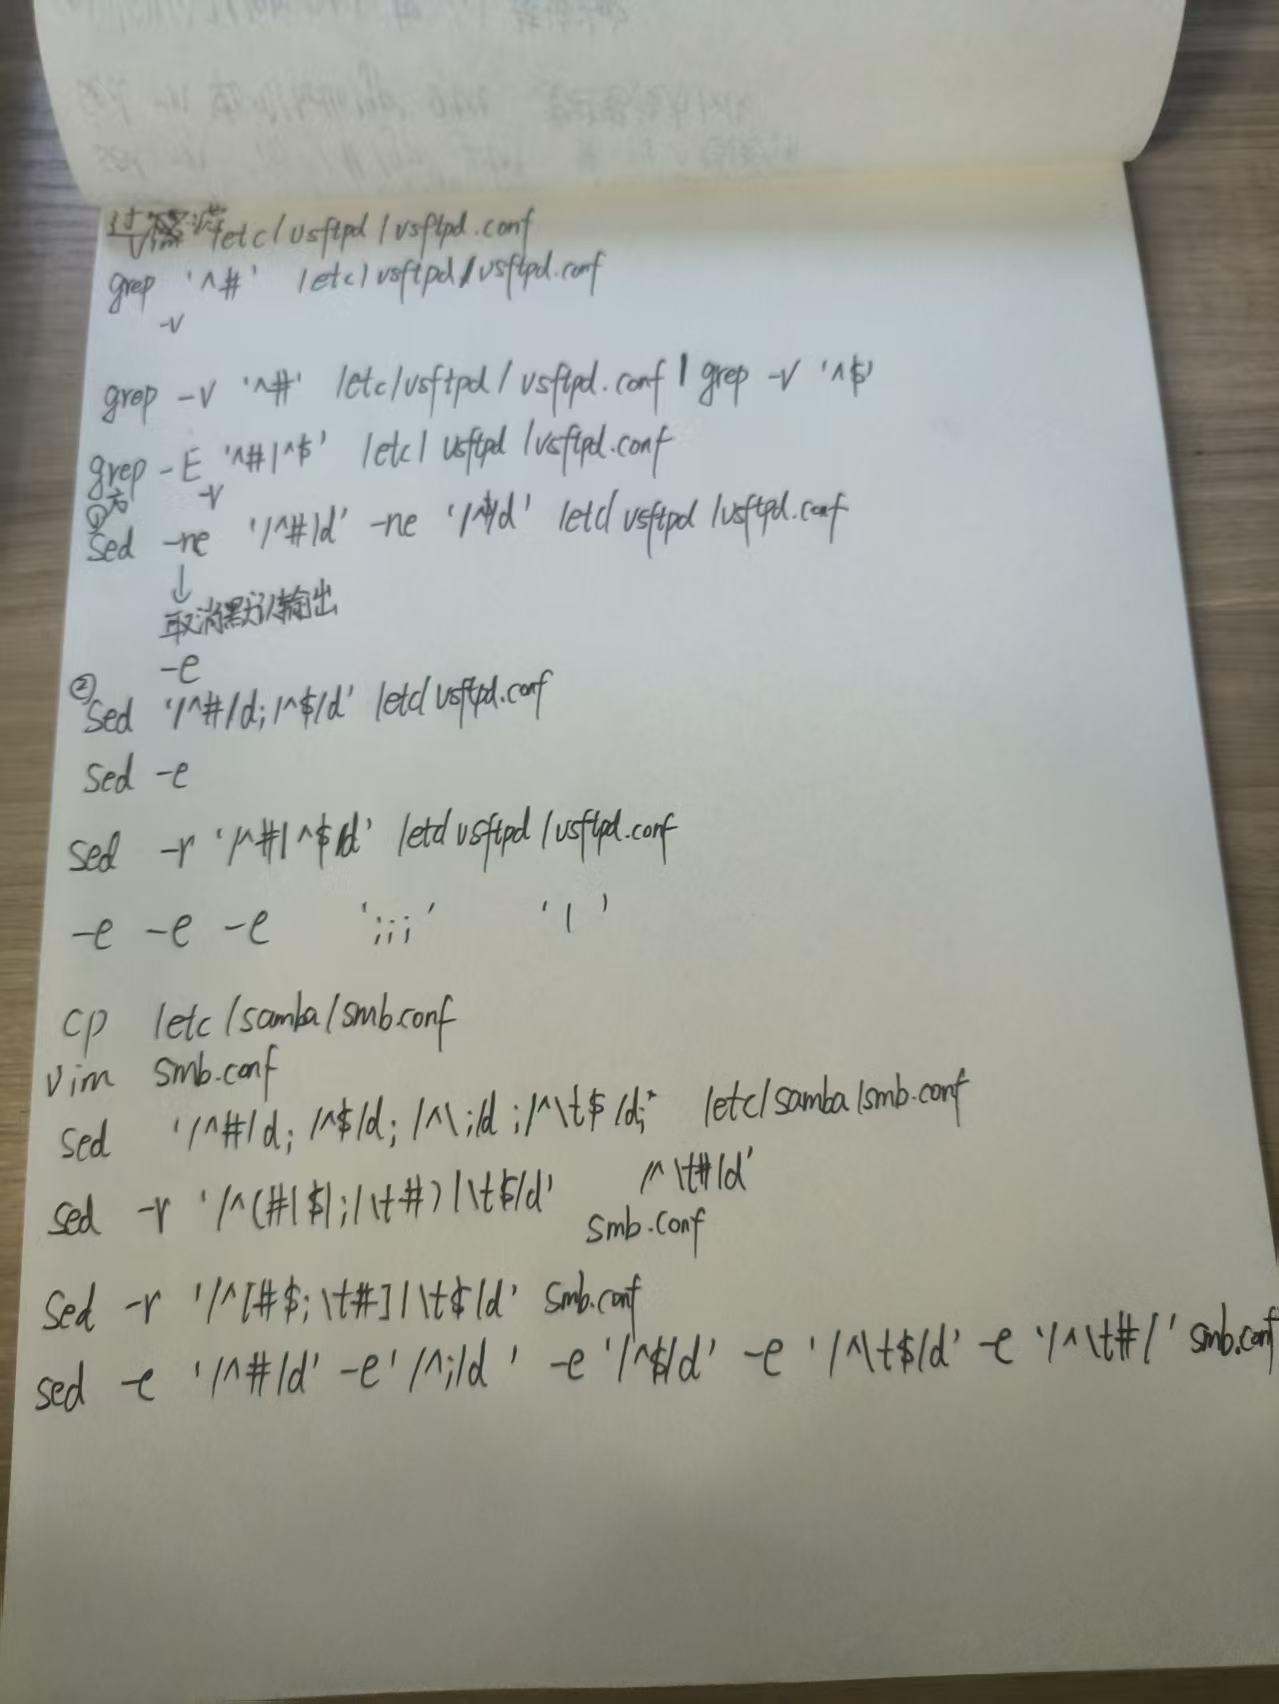 vim /etc/vsftpd/vsftpd.conf
grep '^#' /etc/vsftpd/vsftpd.conf
-v
grep -v '^#' /etc/vsftpd/vsftpd.conf | grep -v '^$'
grep -E '^#|^$' /etc/vsftpd/vsftpd.conf
-v
① sed -ne '/^#/d' -ne '/^$/d' /etc/vsftpd/vsftpd.conf
↓
取消默认输出
-e
② sed '/^#/d; /^$/d' /etc/vsftpd.conf
sed -e
sed -r '/^#|^$/d' /etc/vsftpd/vsftpd.conf
-e -e -e ';;;' '|'
cp /etc/samba/smb.conf
vim smb.conf
sed '/^#/d; /^$/d; /^\;/d ;/^\t$/d;' /etc/samba/smb.conf
/^\t#/d'
sed -r '/^(#|$|;|\t#)|\t$/d' smb.conf
sed -r '/^[#$;\t#]|\t$/d' smb.conf
sed -e '/^#/d' -e '/^;/d' -e '/^$/d' -e '/^\t$/d' -e '/^\t#/' smb.conf